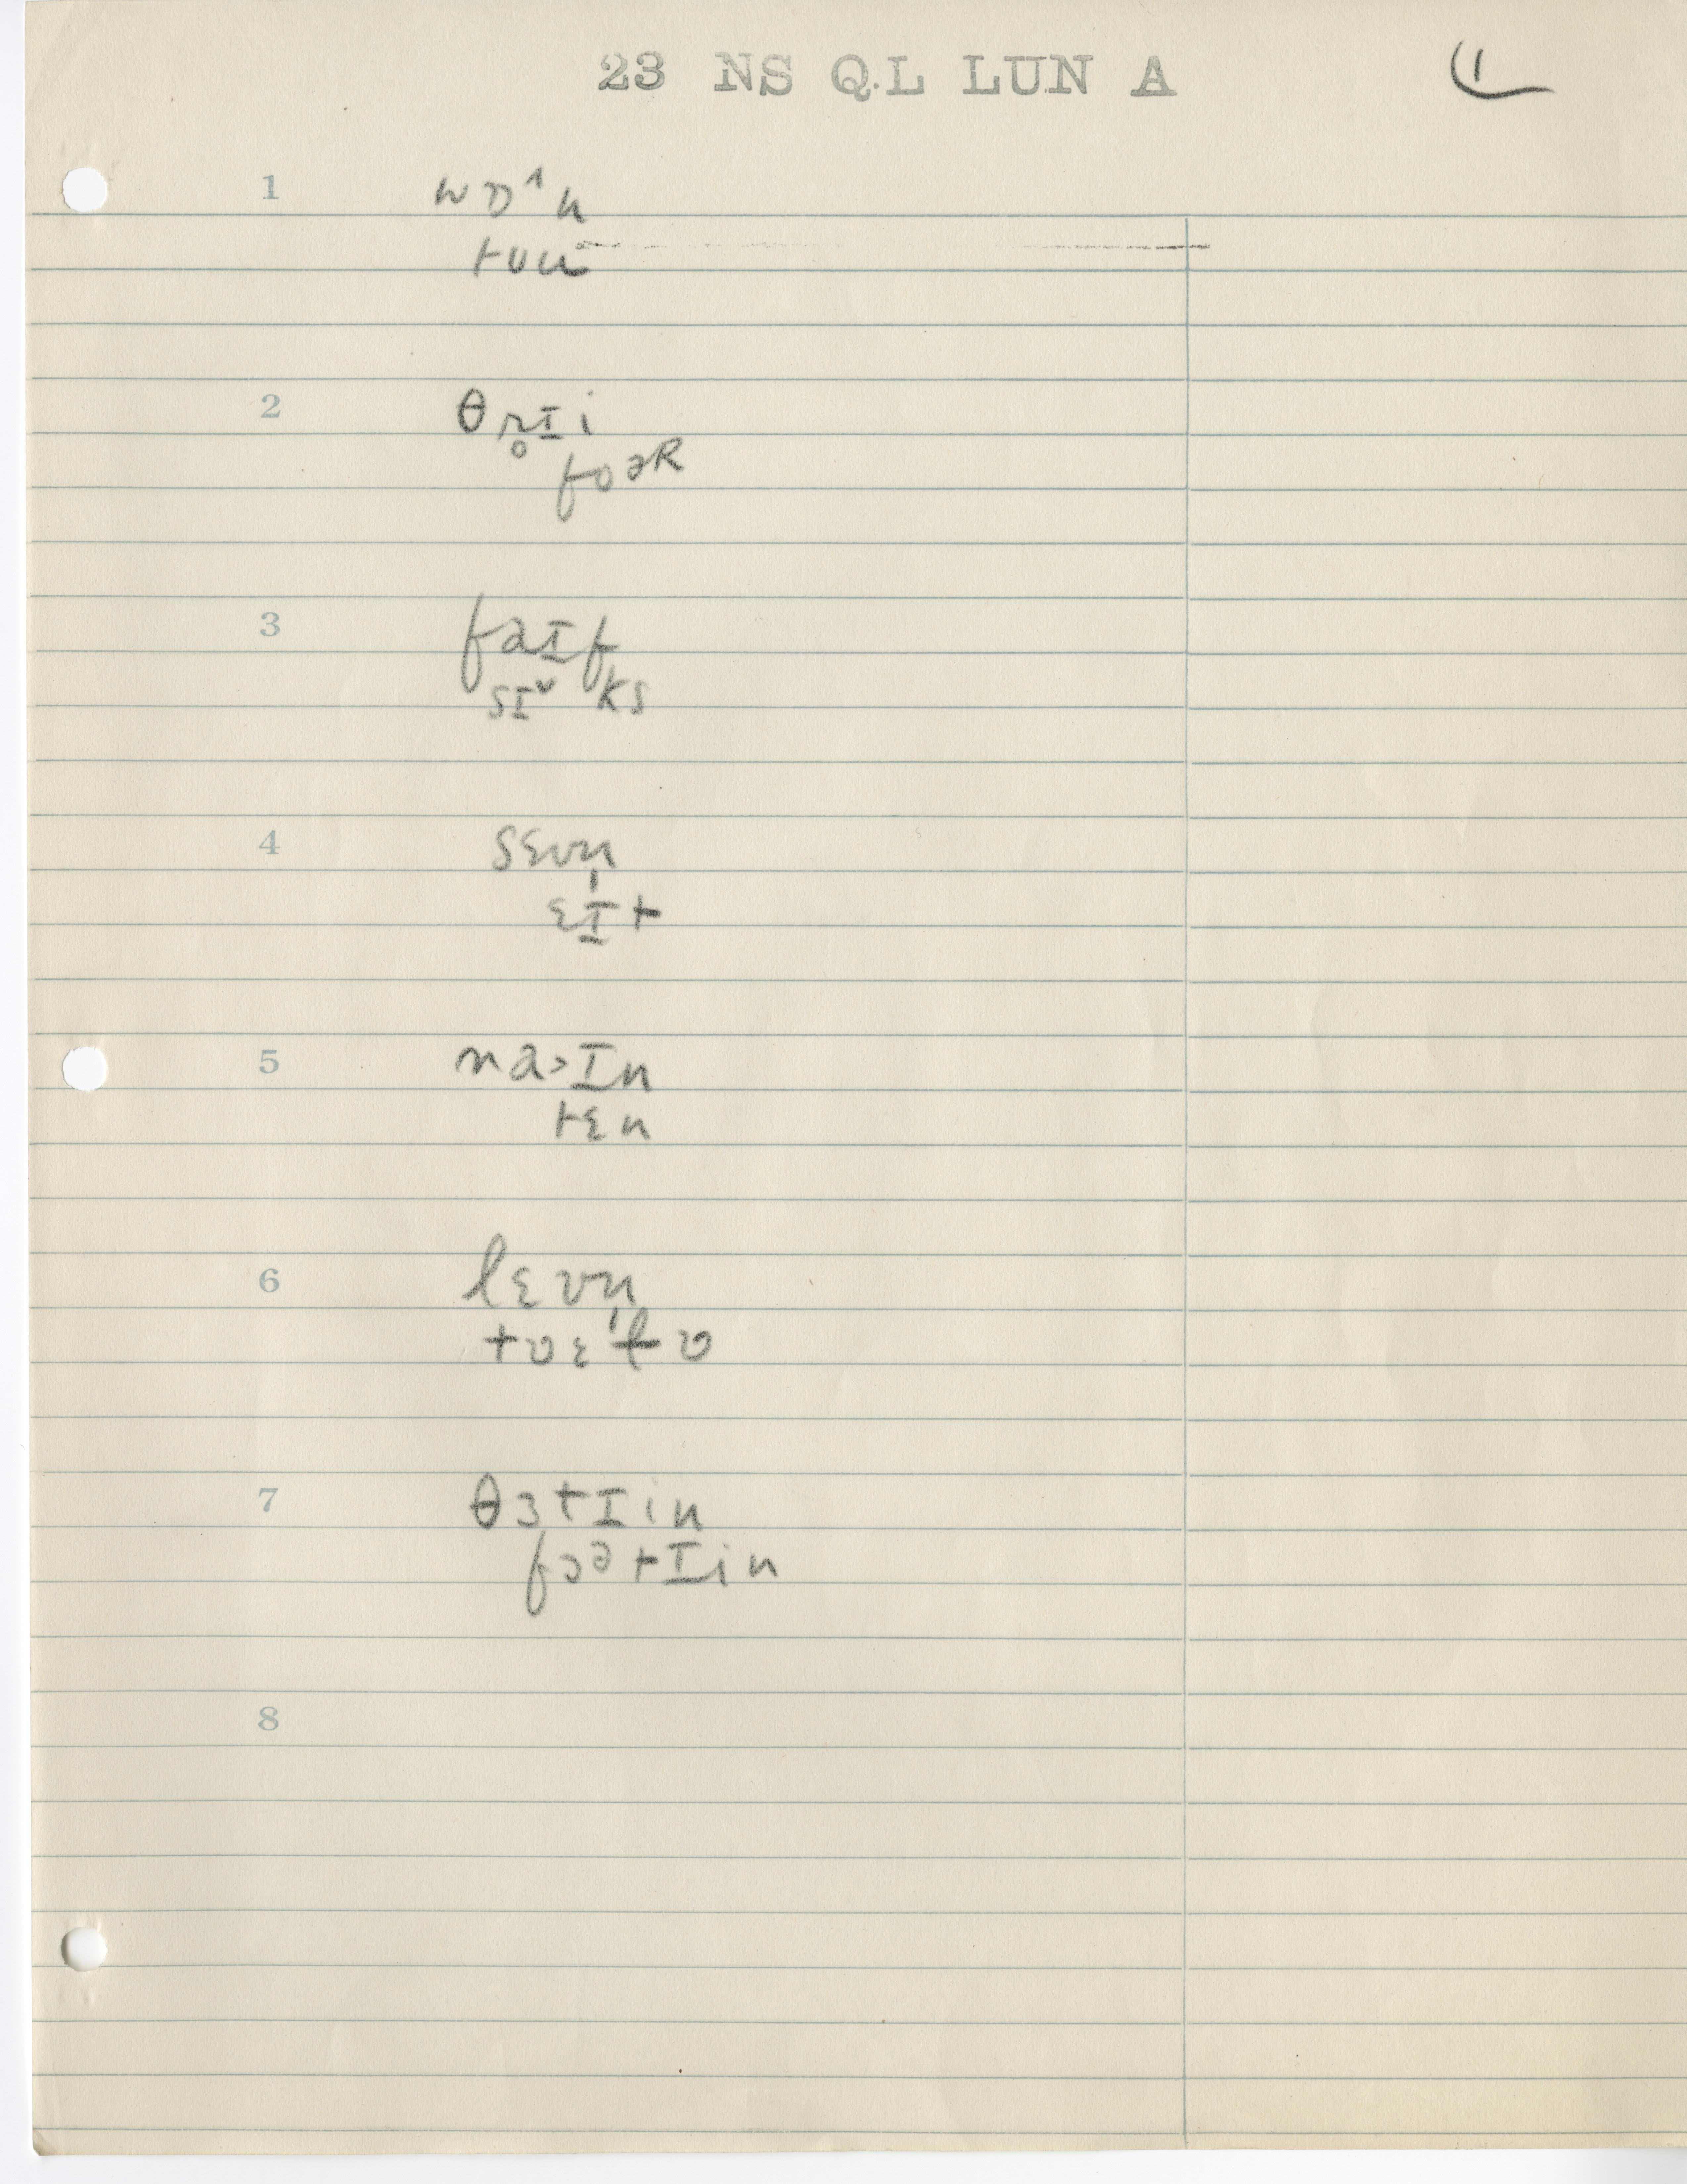 23 NS QL LUN A
1
1
wɒ˄n
tuu
2
θr̥ɪi
foəR
3
faɪf
sɪ˅ks
4
sɛvn̩
ɛɪt
5
na>ɪn
tɛn
6
lɛvn̩
tʊɛlfv
7
θɜtɪin
fɔətɪin
8